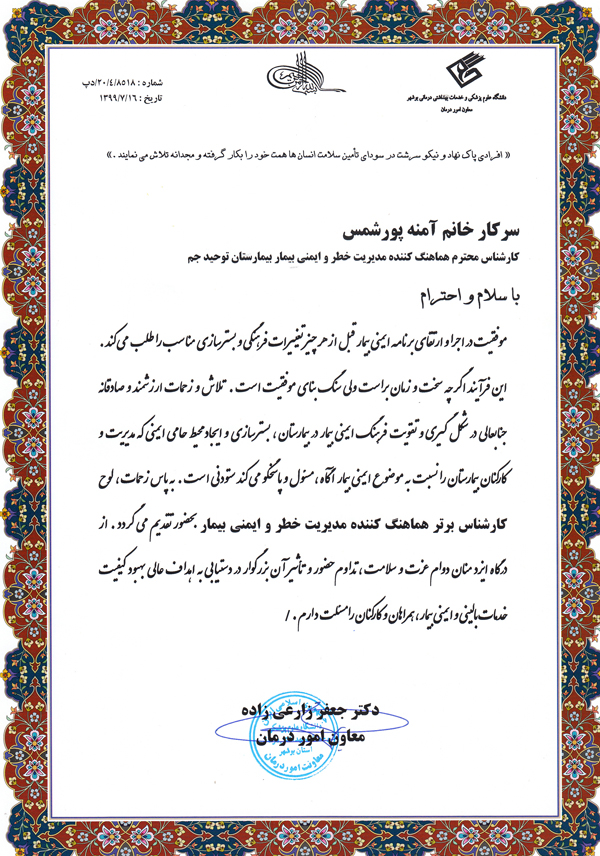 بسم الله الرحمن الرحیم
دانشگاه علوم پزشکی و خدمات بهداشتی درمانی بوشهر
معاون امور درمان
شماره : ۲۰/۴/۸۵۱۸/دب
تاریخ : ۱۳۹۹/۷/۱۶
« افرادی پاک نهاد و نیکو سرشت در سودای تأمین سلامت انسان ها همت خود را بکار گرفته و مجدانه تلاش می نمایند .»
سرکار خانم آمنه پورشمس
کارشناس محترم هماهنگ کننده مدیریت خطر و ایمنی بیمار بیمارستان توحید جم
با سلام و احترام
موفقیت در اجرا و ارتقای برنامه ایمنی بیمار قبل از هر چیز تغییرات فرهنگی و بسترسازی مناسب را طلب می کند .
این فرآیند اگرچه سخت و زمان براست ولی سنگ بنای موفقیت است . تلاش و زحمات ارزشمند و صادقانه
جنابعالی در شکل گیری و تقویت فرهنگ ایمنی بیمار در بیمارستان ، بسترسازی و ایجاد محیط حامی ایمنی که مدیریت و
کارکنان بیمارستان را نسبت به موضوع ایمنی بیمار آگاه ، مسئول و پاسخگو می کند ستودنی است . به پاس زحمات ، لوح
کارشناس برتر هماهنگ کننده مدیریت خطر و ایمنی بیمار بحضور تقدیم می گردد . از
درگاه ایزد منان دوام عزت و سلامت ، تداوم حضور و تأثیر آن بزرگوار در دستیابی به اهداف عالی بهبود کیفیت
خدمات بالینی و ایمنی بیمار ، همراهان و کارکنان را مسئلت دارم . /
دکتر جعفر زارعی زاده
معاون امور درمان
استان بوشهر
معاونت امور درمان